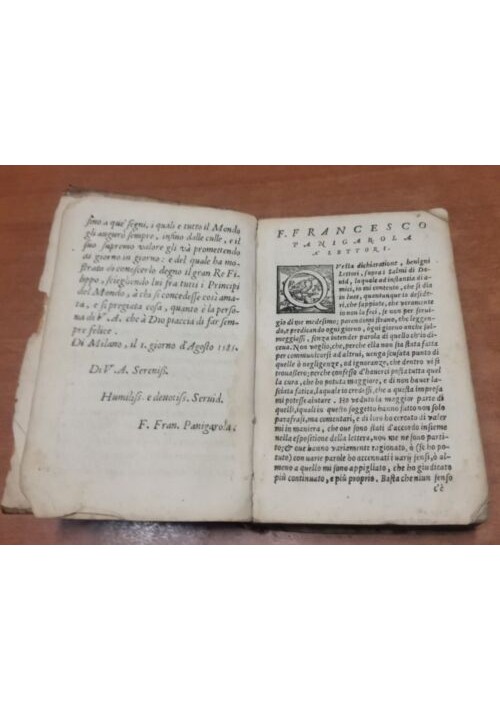 sino a que' segni, i quali e tutto il Mondo
gli augurò sempre, insino dalle culle, e il
suo supremo valore gli và promettendo
di giorno in giorno: e del quale ha mo-
strato di conoscerlo degno il gran Re Fi-
lippo, scegliendo lui fra tutti i Principi
del Mondo, à chi si concedesse così ama-
ta, e si pregiata cosa, quanto è la perso-
na di V. A. che à Dio piaccia di far sem-
pre felice.
Di Milano, il 1. giorno d'Agosto
Di V. A. Sereniss.
Humiliss. e deuotiss. Seruid.
F. Fran. Panigarola.
F. FRANCESCO
PANIGAROLA
A' LETTORI.
Questa dichiaratione, benigni
Lettori, sopra i Salmi di Da-
uid, laquale ad instantia di a-
mici, in mi contento, che si dia
in luce, quantunque io deside-
ri, che sappiate, che veramente
io non la feci, se non per serui-
gio di me medesimo; parendomi strano, che leggen-
do, e predicando ogni giorno, ogni giorno anche sal-
meggiassi, senza intender parola di quello ch'io di-
ceua. Non voglio, che, perche ella non sia stata fatta
per communicarsi ad altrui, venga scusata punto di
quelle ò negligenze, ad ignoranze, che dentro vi si
trouassero; perche confesso d'hauerci posta tutta quel
la cura, che ho potuta maggiore, e di non hauer la-
sciata fatica, laquale io credessi, che a questa impresa
mi potesse aiutare. Ho veduto la maggior parte di
quelli, iquali in questo soggetto hanno fatto non solo
parafrasi, ma comentari, e di loro ho cercato di valer
mi in maniera, che oue sono stati d'accordo insieme
nella espositione della lettera, non me ne sono parti-
to; & oue hanno variamente ragionato, ò (se ho po-
tuto) con varie parole ho accennati i varij sensi, ò al-
meno a quello mi sono appigliato, che ho giudicato
più continuato, e più proprio. Basta che niun senso